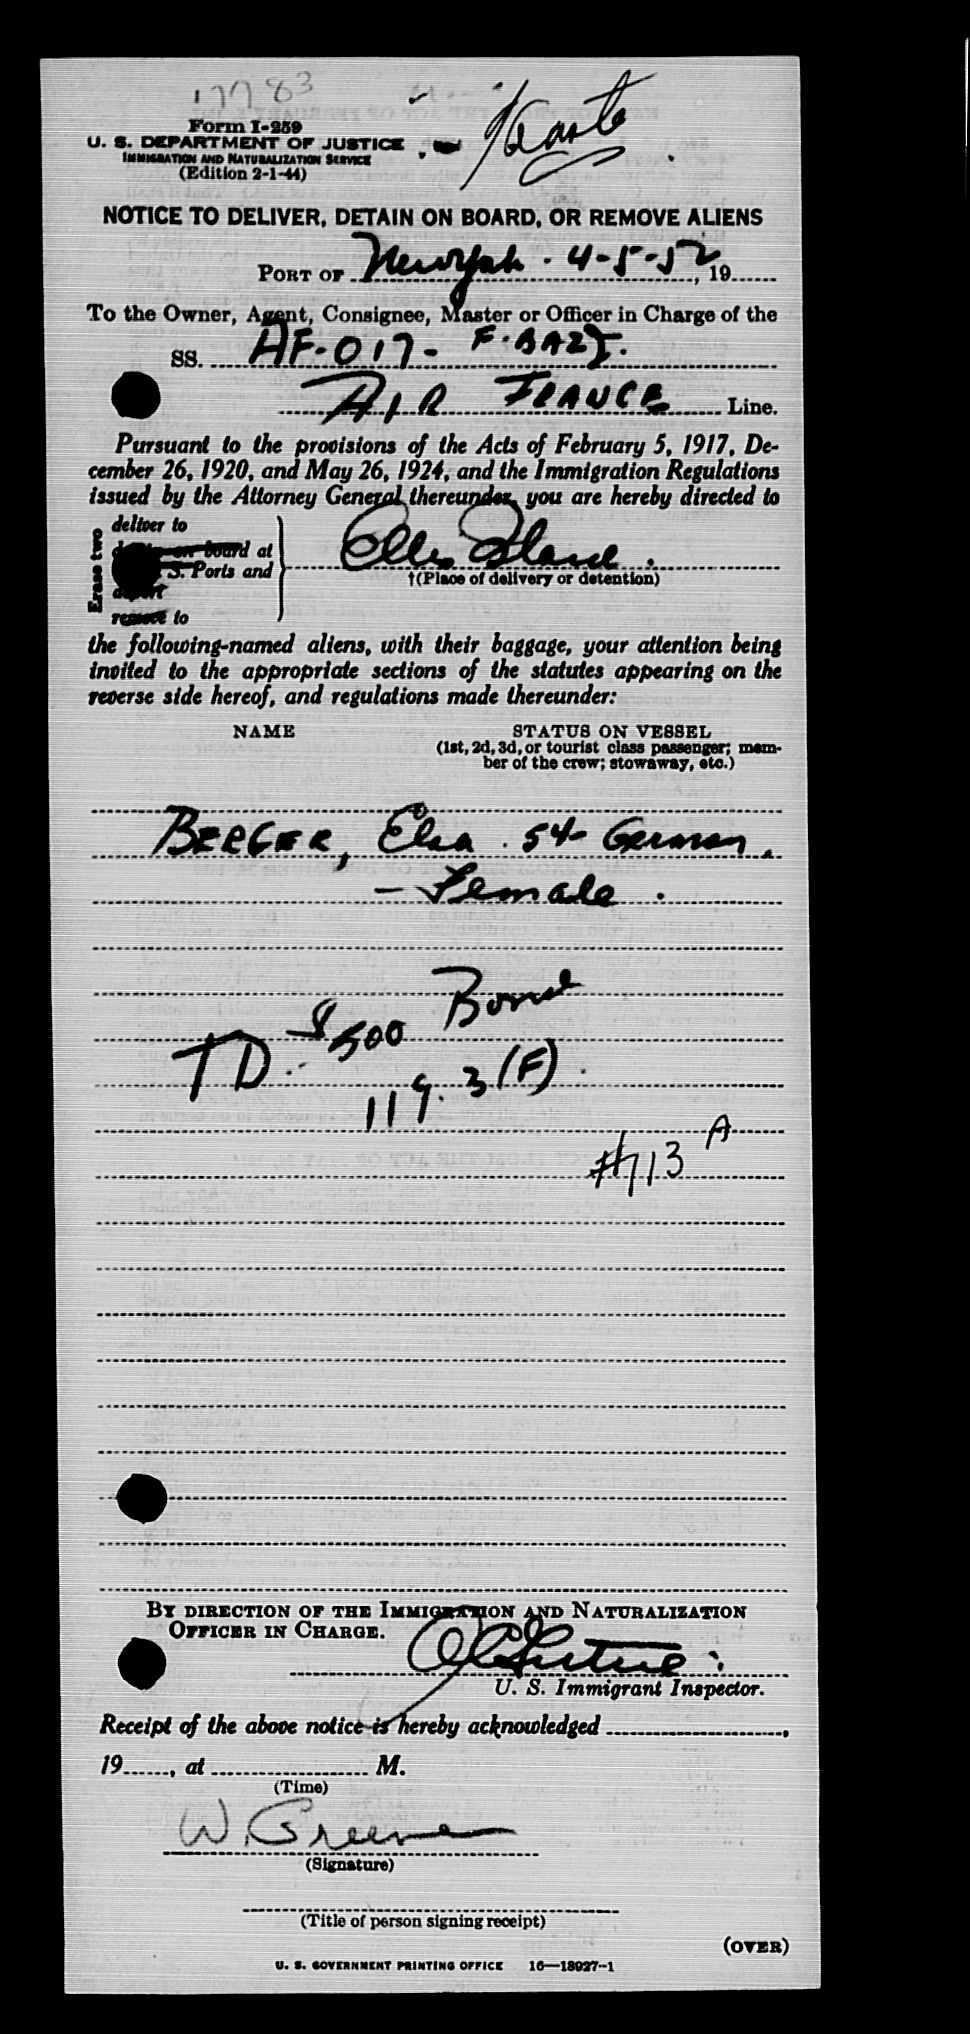 17783
Form I-259
U. S. DEPARTMENT OF JUSTICE
IMMIGRATION AND NATURALIZATION SERVICE
(Edition 2-1-44)
NOTICE TO DELIVER, DETAIN ON BOARD, OR REMOVE ALIENS
PORT OF New York . 4-5-52, 19
To the Owner, Agent, Consignee, Master or Officer in Charge of the
SS. AF-017- F-BAZI.
AIR FRANCE Line.
Pursuant to the provisions of the Acts of February 5, 1917, De-
cember 26, 1920, and May 26, 1924, and the Immigration Regulations
issued by the Attorney General thereunder, you are hereby directed to
Erase two
deliver to
on board at
S. Ports and
remove to
Ellis Island .
†(Place of delivery or detention)
the following-named aliens, with their baggage, your attention being
invited to the appropriate sections of the statutes appearing on the
reverse side hereof, and regulations made thereunder:
NAME STATUS ON VESSEL
(1st, 2d, 3d, or tourist class passenger; mem-
ber of the crew; stowaway, etc.)
BERGER, Elsa . 54- German.
- Female .
TD - $500 Bond
119.3(F).
#713 A
BY DIRECTION OF THE IMMIGRATION AND NATURALIZATION
OFFICER IN CHARGE.
U. S. Immigrant Inspector.
Receipt of the above notice is hereby acknowledged ,
19 , at M.
(Time)
W. Greene
(Signature)
(Title of person signing receipt)
(OVER)
U. S. GOVERNMENT PRINTING OFFICE 16—18927-1